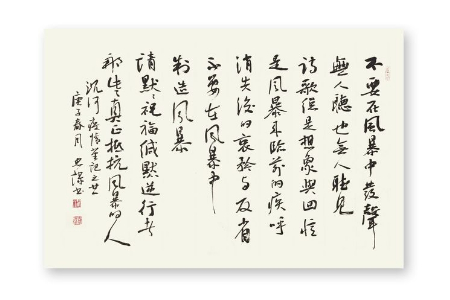 不要在風暴中發聲
無人聽也無人聽見
詩歌總是想象與回憶
是風暴来臨前的疾呼
消失後的哀矜与反省
不要在風暴中
制造風暴
請默默祝福緘默逆行者
那些真正抵抗風暴的人
沉河 疫情筆記之廿
庚子春月